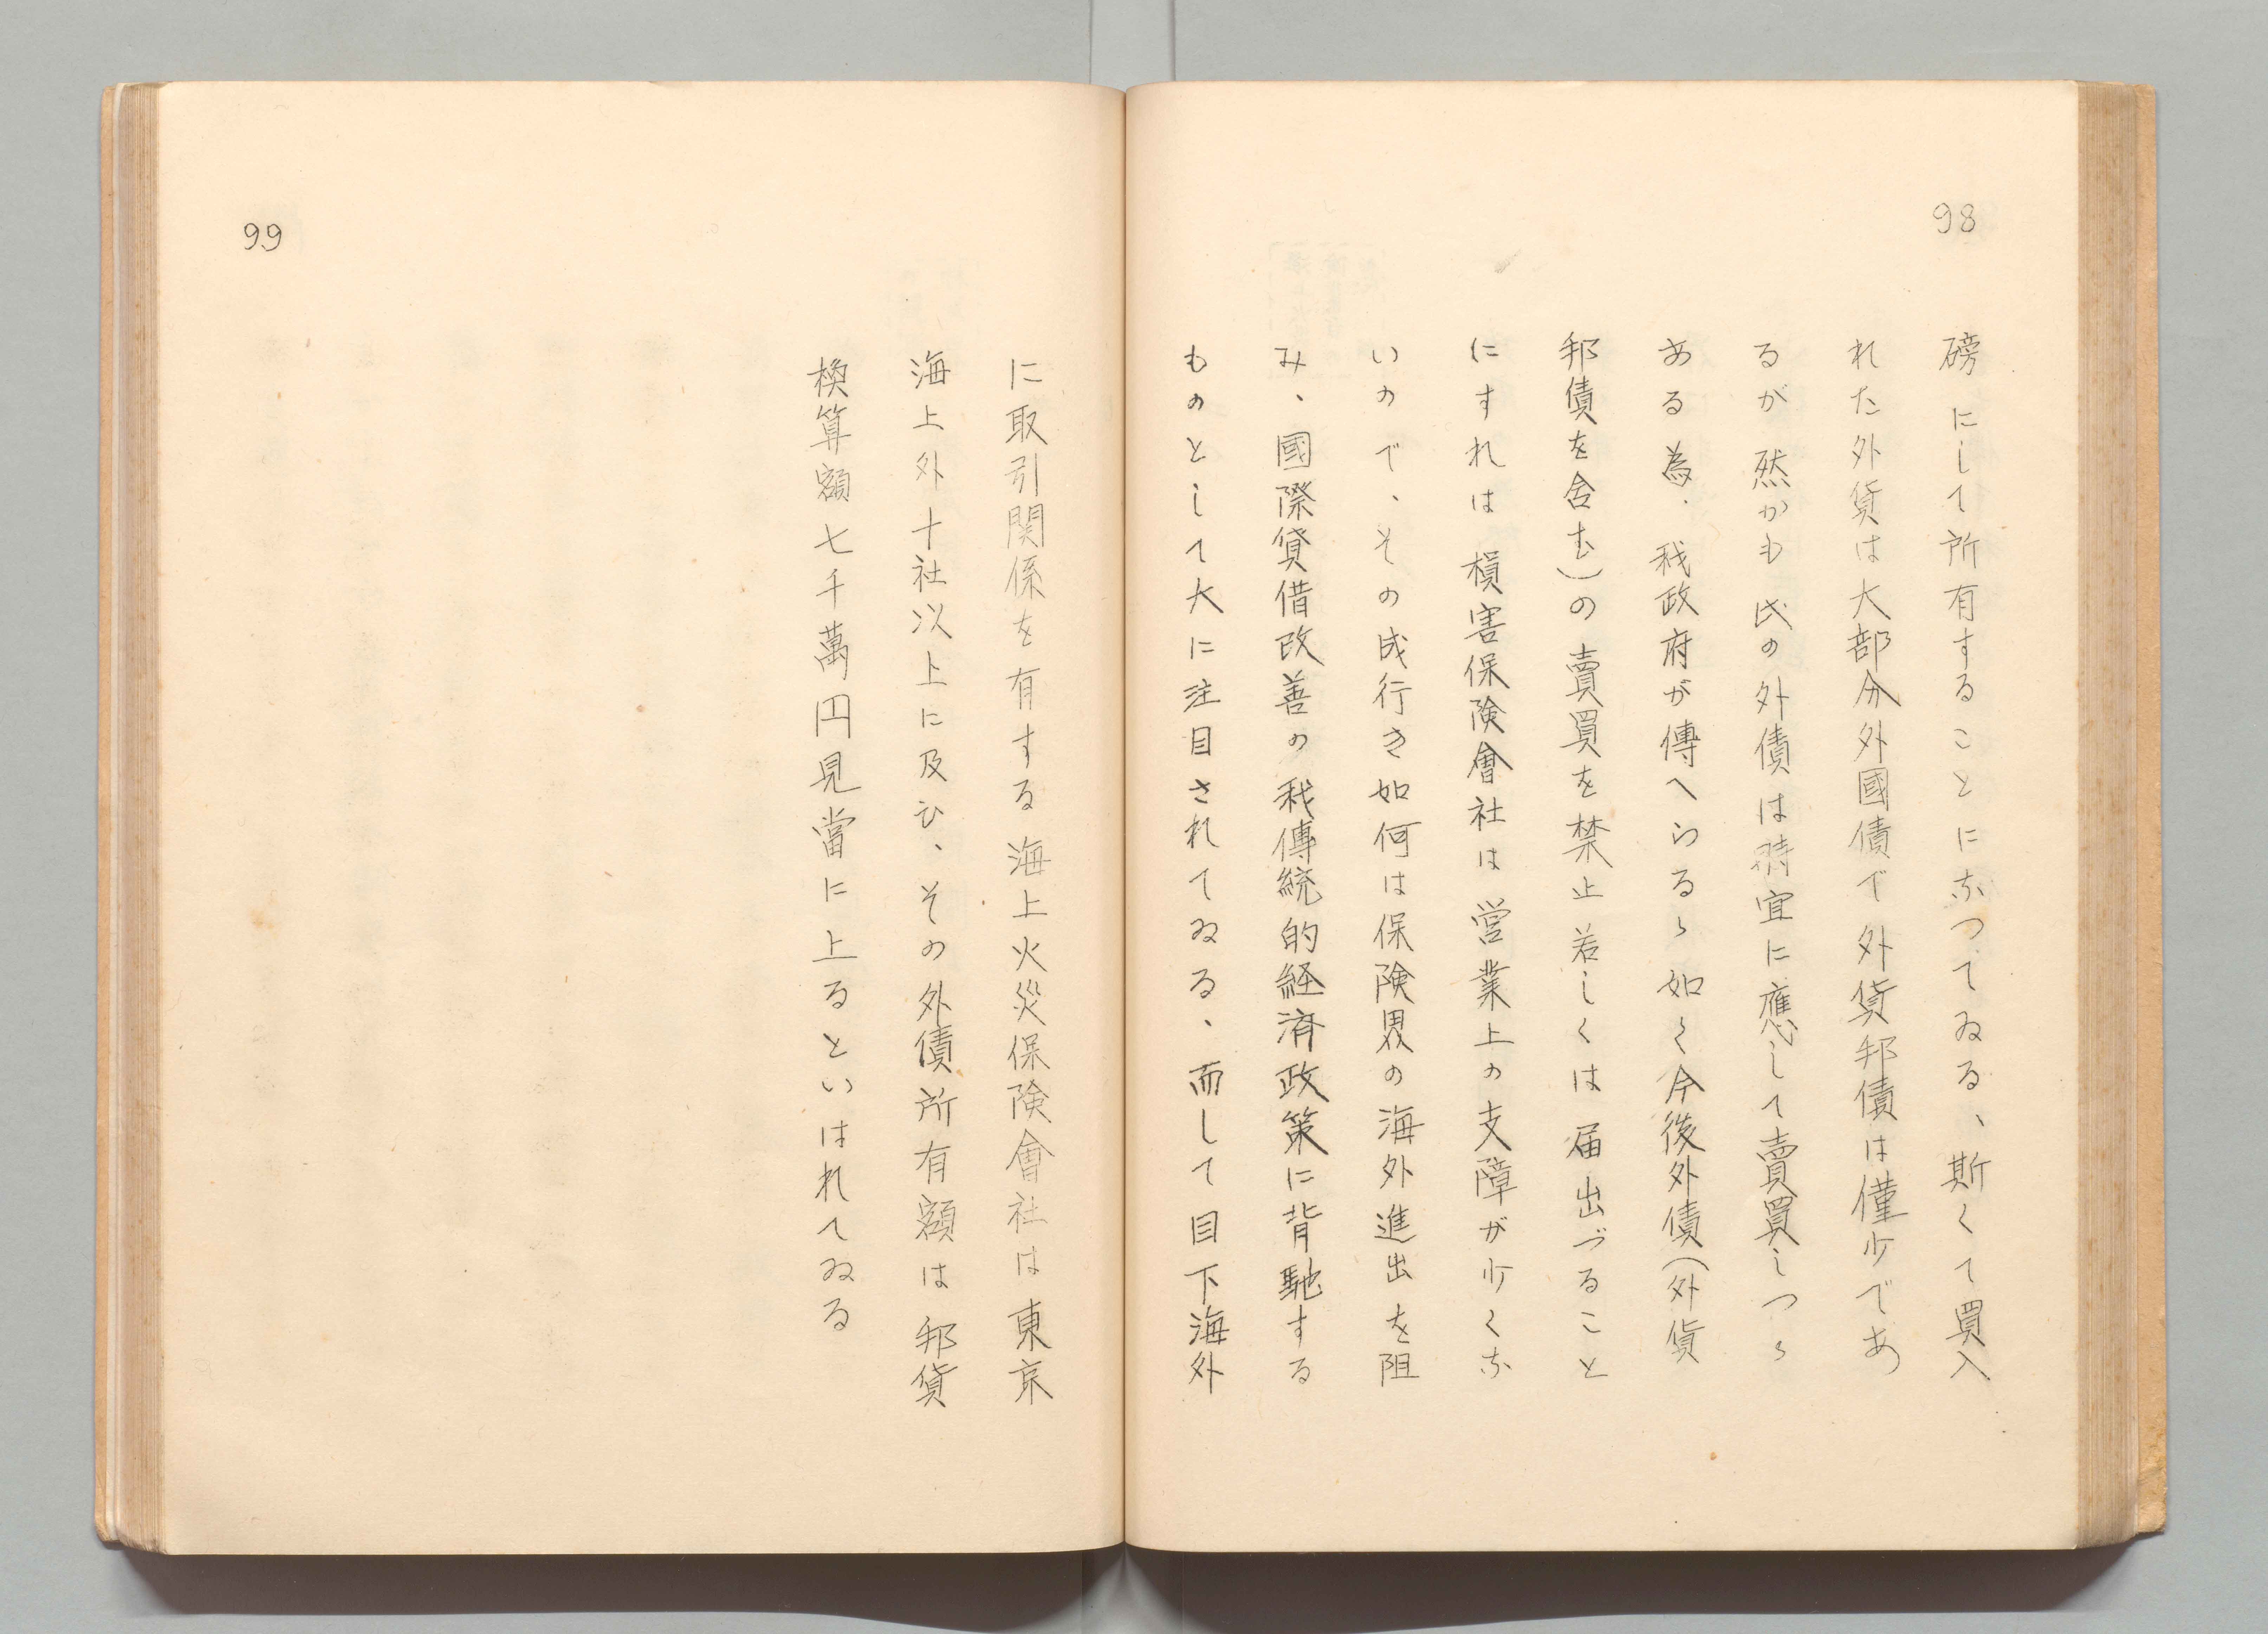 98
磅にして所有することになつてゐる、斯くて買入
れた外貨は大部分外國債で外貨邦債は僅少であ
るが然かも此の外債は時宜に應して賣買しつゝ
ある為、我政府が傳へらるゝ如く今後外債(外貨
邦債を含む)の賣買を禁止若しくは届出づること
にすれは損害保険會社は営業上の支障が少くな
いので、その成行き如何は保険界の海外進出を阻
み、國際貸借改善の我傳統的経済政策に背馳する
ものとして大に注目されてゐる、而して目下海外
99
に取引関係を有する海上火災保険會社は東京
海上外十社以上に及ひ、その外債所有額は邦貨
換算額七千萬円見當に上るといはれてゐる